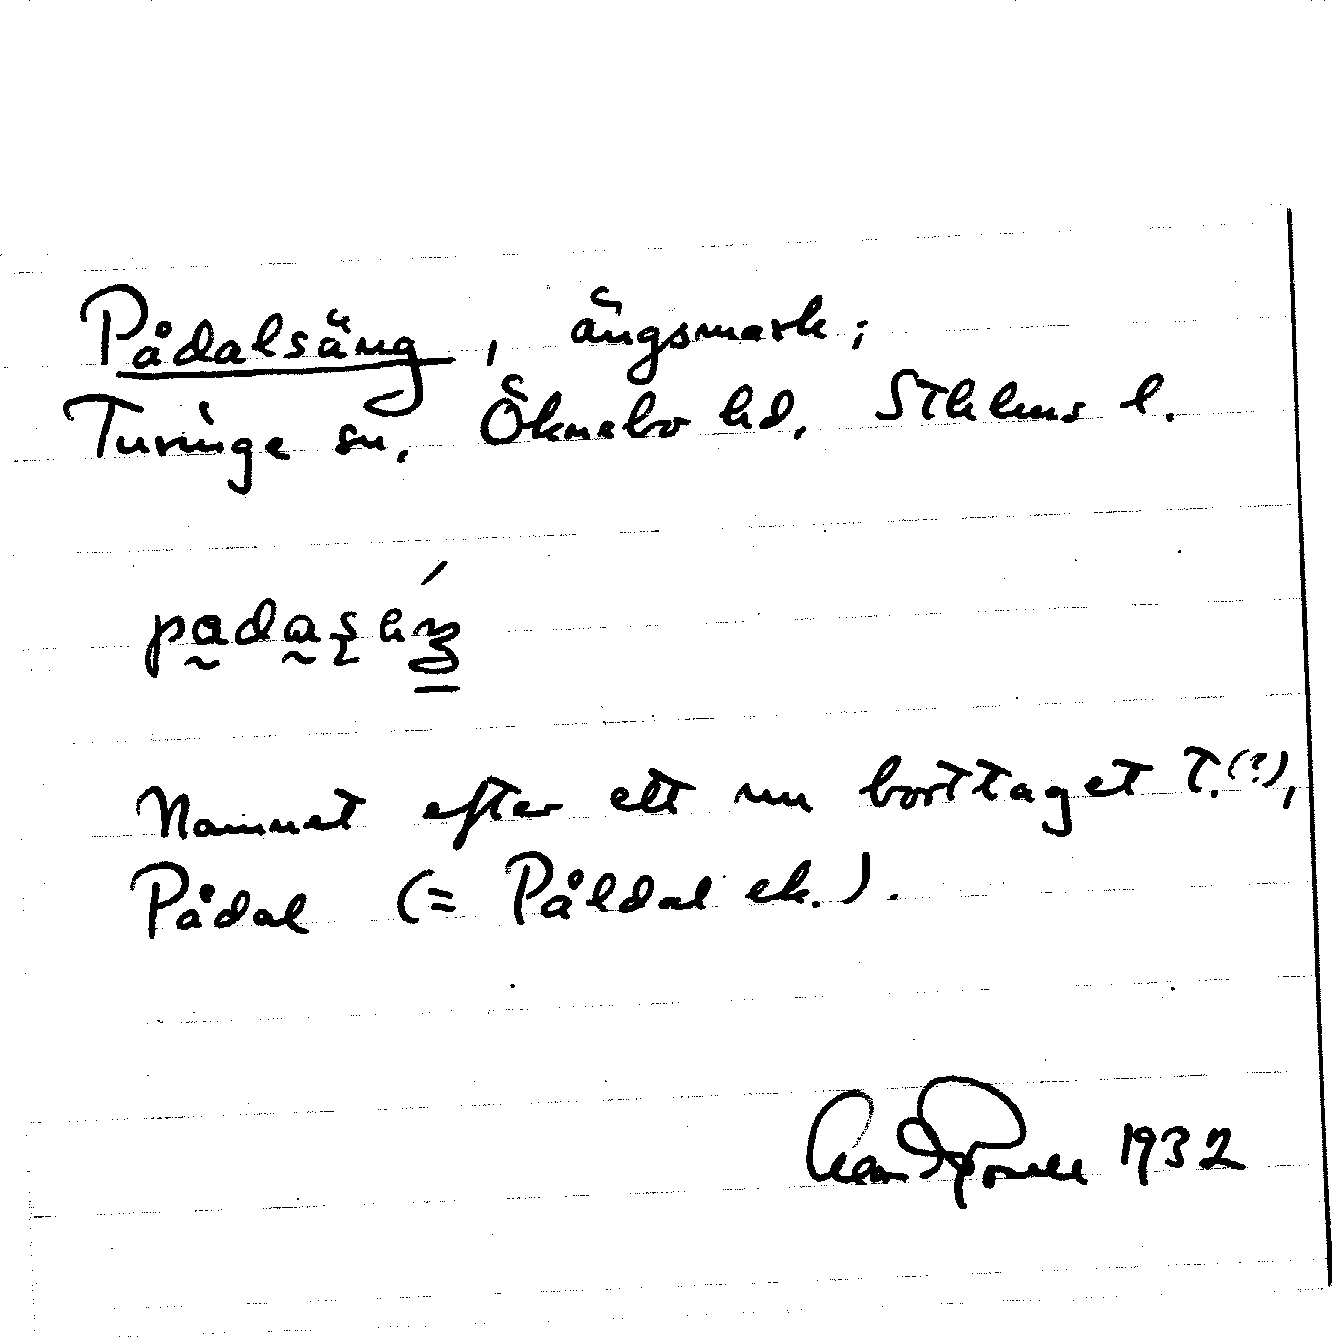 Pådalsäng, ängsmark;
Turinge sn, Öknebo hd, Sthlms l.
Namnet efter ett nu borttaget T.(?),
Pådal (= Påldal ek.).
1932